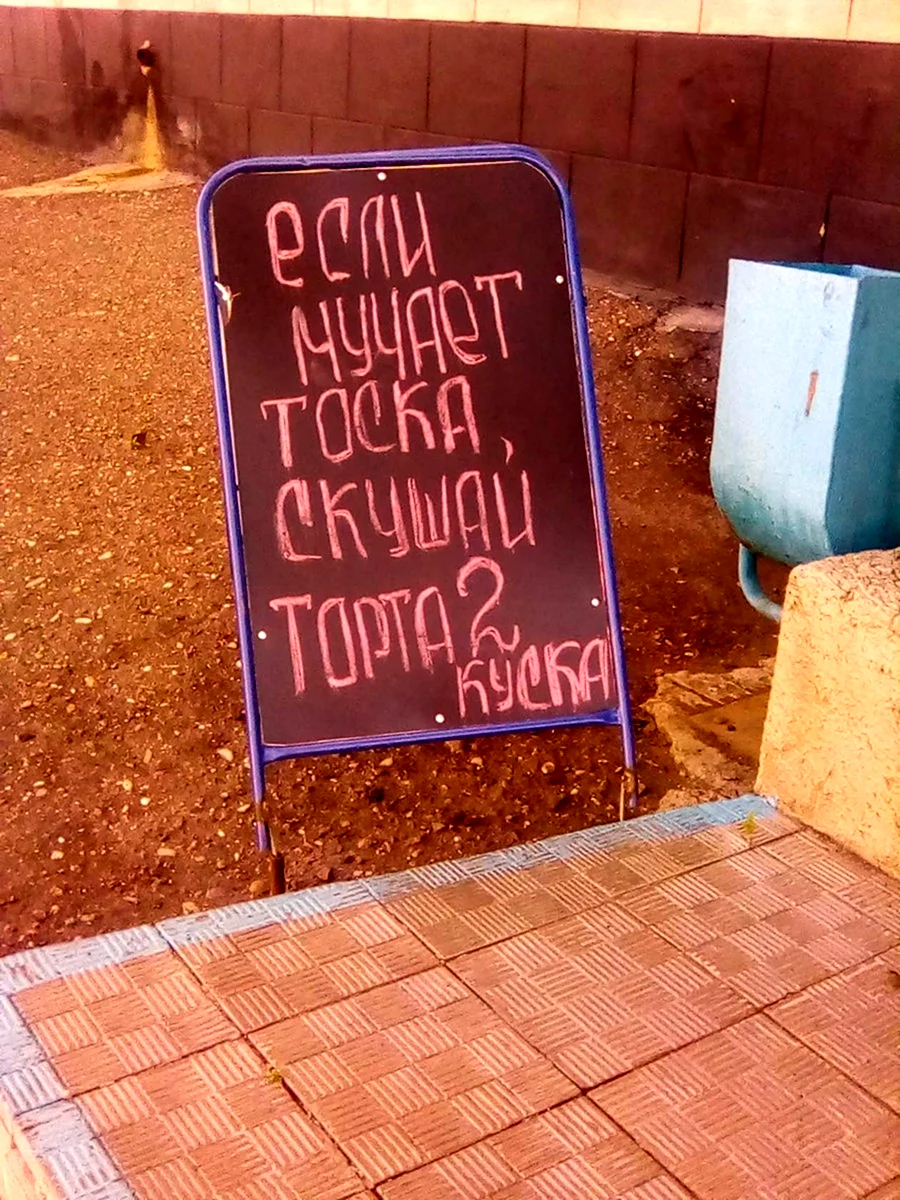 если
мучает
тоска
скушай
торта 2
куска